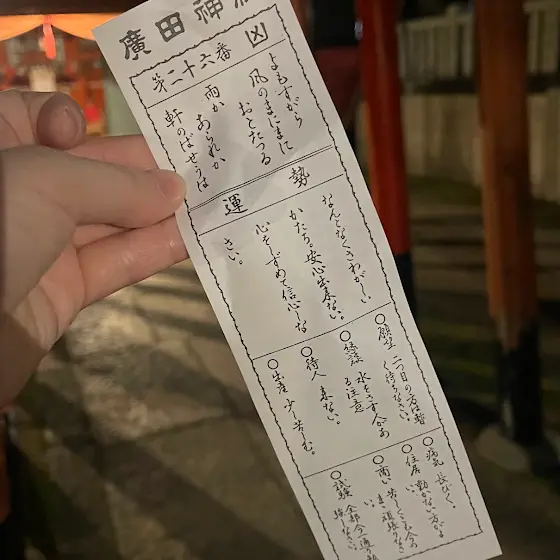 廣田神
第二十六番 凶
よもすがら
風のまにまに
おとたつる
雨かあられか
軒のばせうは
運勢
なんとなくさわがしい
かたち。安心出来ない。
心をしずめて信心しな
さい。
○願望 二つ目の方は暫
く待ちなさい。
○縁談 水をさす人があ
る注意
○待人 来ない。
○生産 少し苦しむ。
○病気 長びく。
○住居 動かない方がよ
い。
○商い 苦しくとも今の
まま頑張りな
○試験 全部今一通り勉
強しなさい。